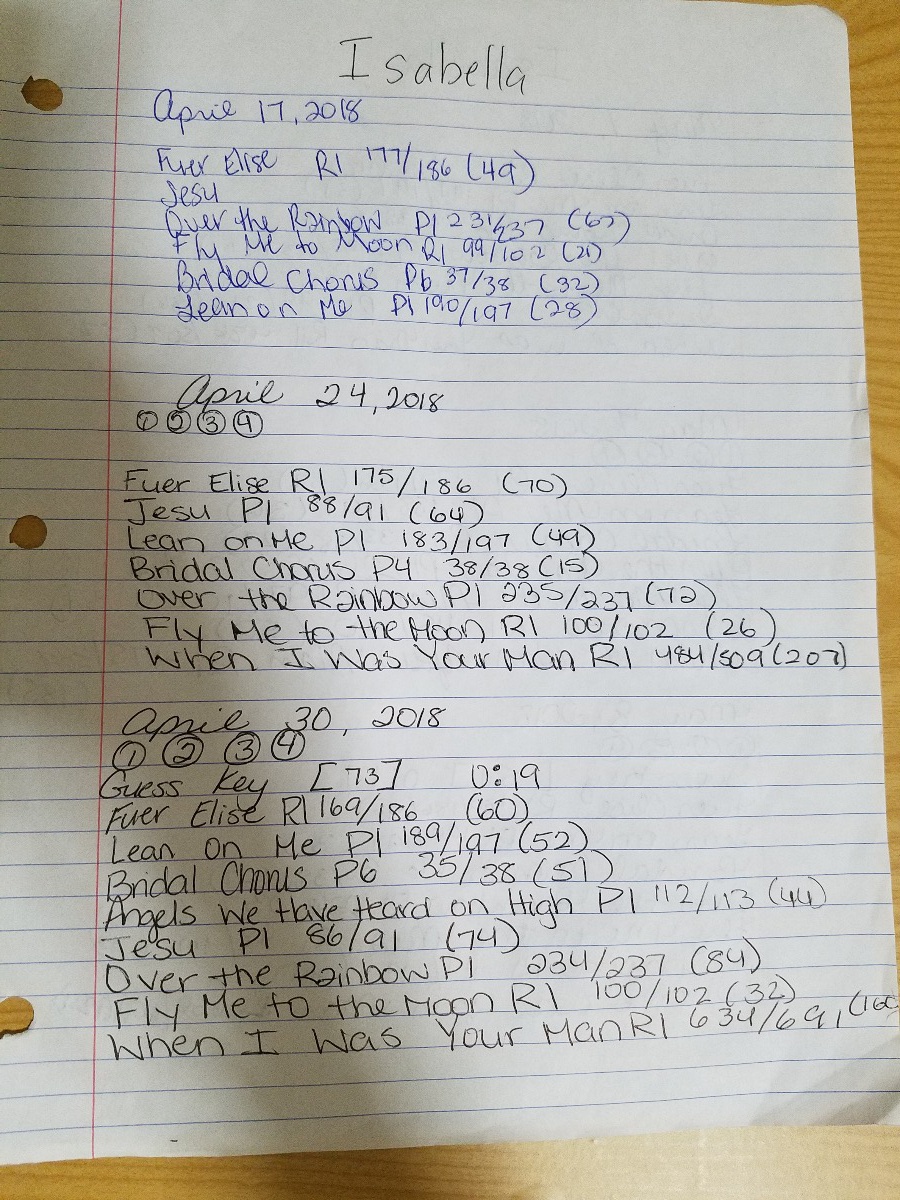 Isabella
April 17, 2018
Fuer Elise R1 177/186 (49)
Jesu
Over the Rainbow P1 231/237 (67)
Fly Me to Moon R1 99/102 (21)
Bridal Chorus P6 37/38 (32)
Lean on Me P1 190/197 (28)
April 24, 2018
① ② ③ ④
Fuer Elise R1 175/186 (70)
Jesu P1 88/91 (64)
Lean on Me P1 183/197 (49)
Bridal Chorus P4 38/38 (15)
Over the Rainbow P1 235/237 (72)
Fly Me to the Moon R1 100/102 (26)
When I Was Your Man R1 484/509 (207)
April 30, 2018
① ② ③ ④
Guess Key [73] 0:19
Fuer Elise R1 169/186 (60)
Lean on Me P1 189/197 (52)
Bridal Chorus P6 35/38 (51)
Angels We Have Heard on High P1 112/113 (44)
Jesu P1 86/91 (74)
Over the Rainbow P1 234/237 (84)
Fly Me to the Moon R1 100/102 (32)
When I Was Your Man R1 634/691